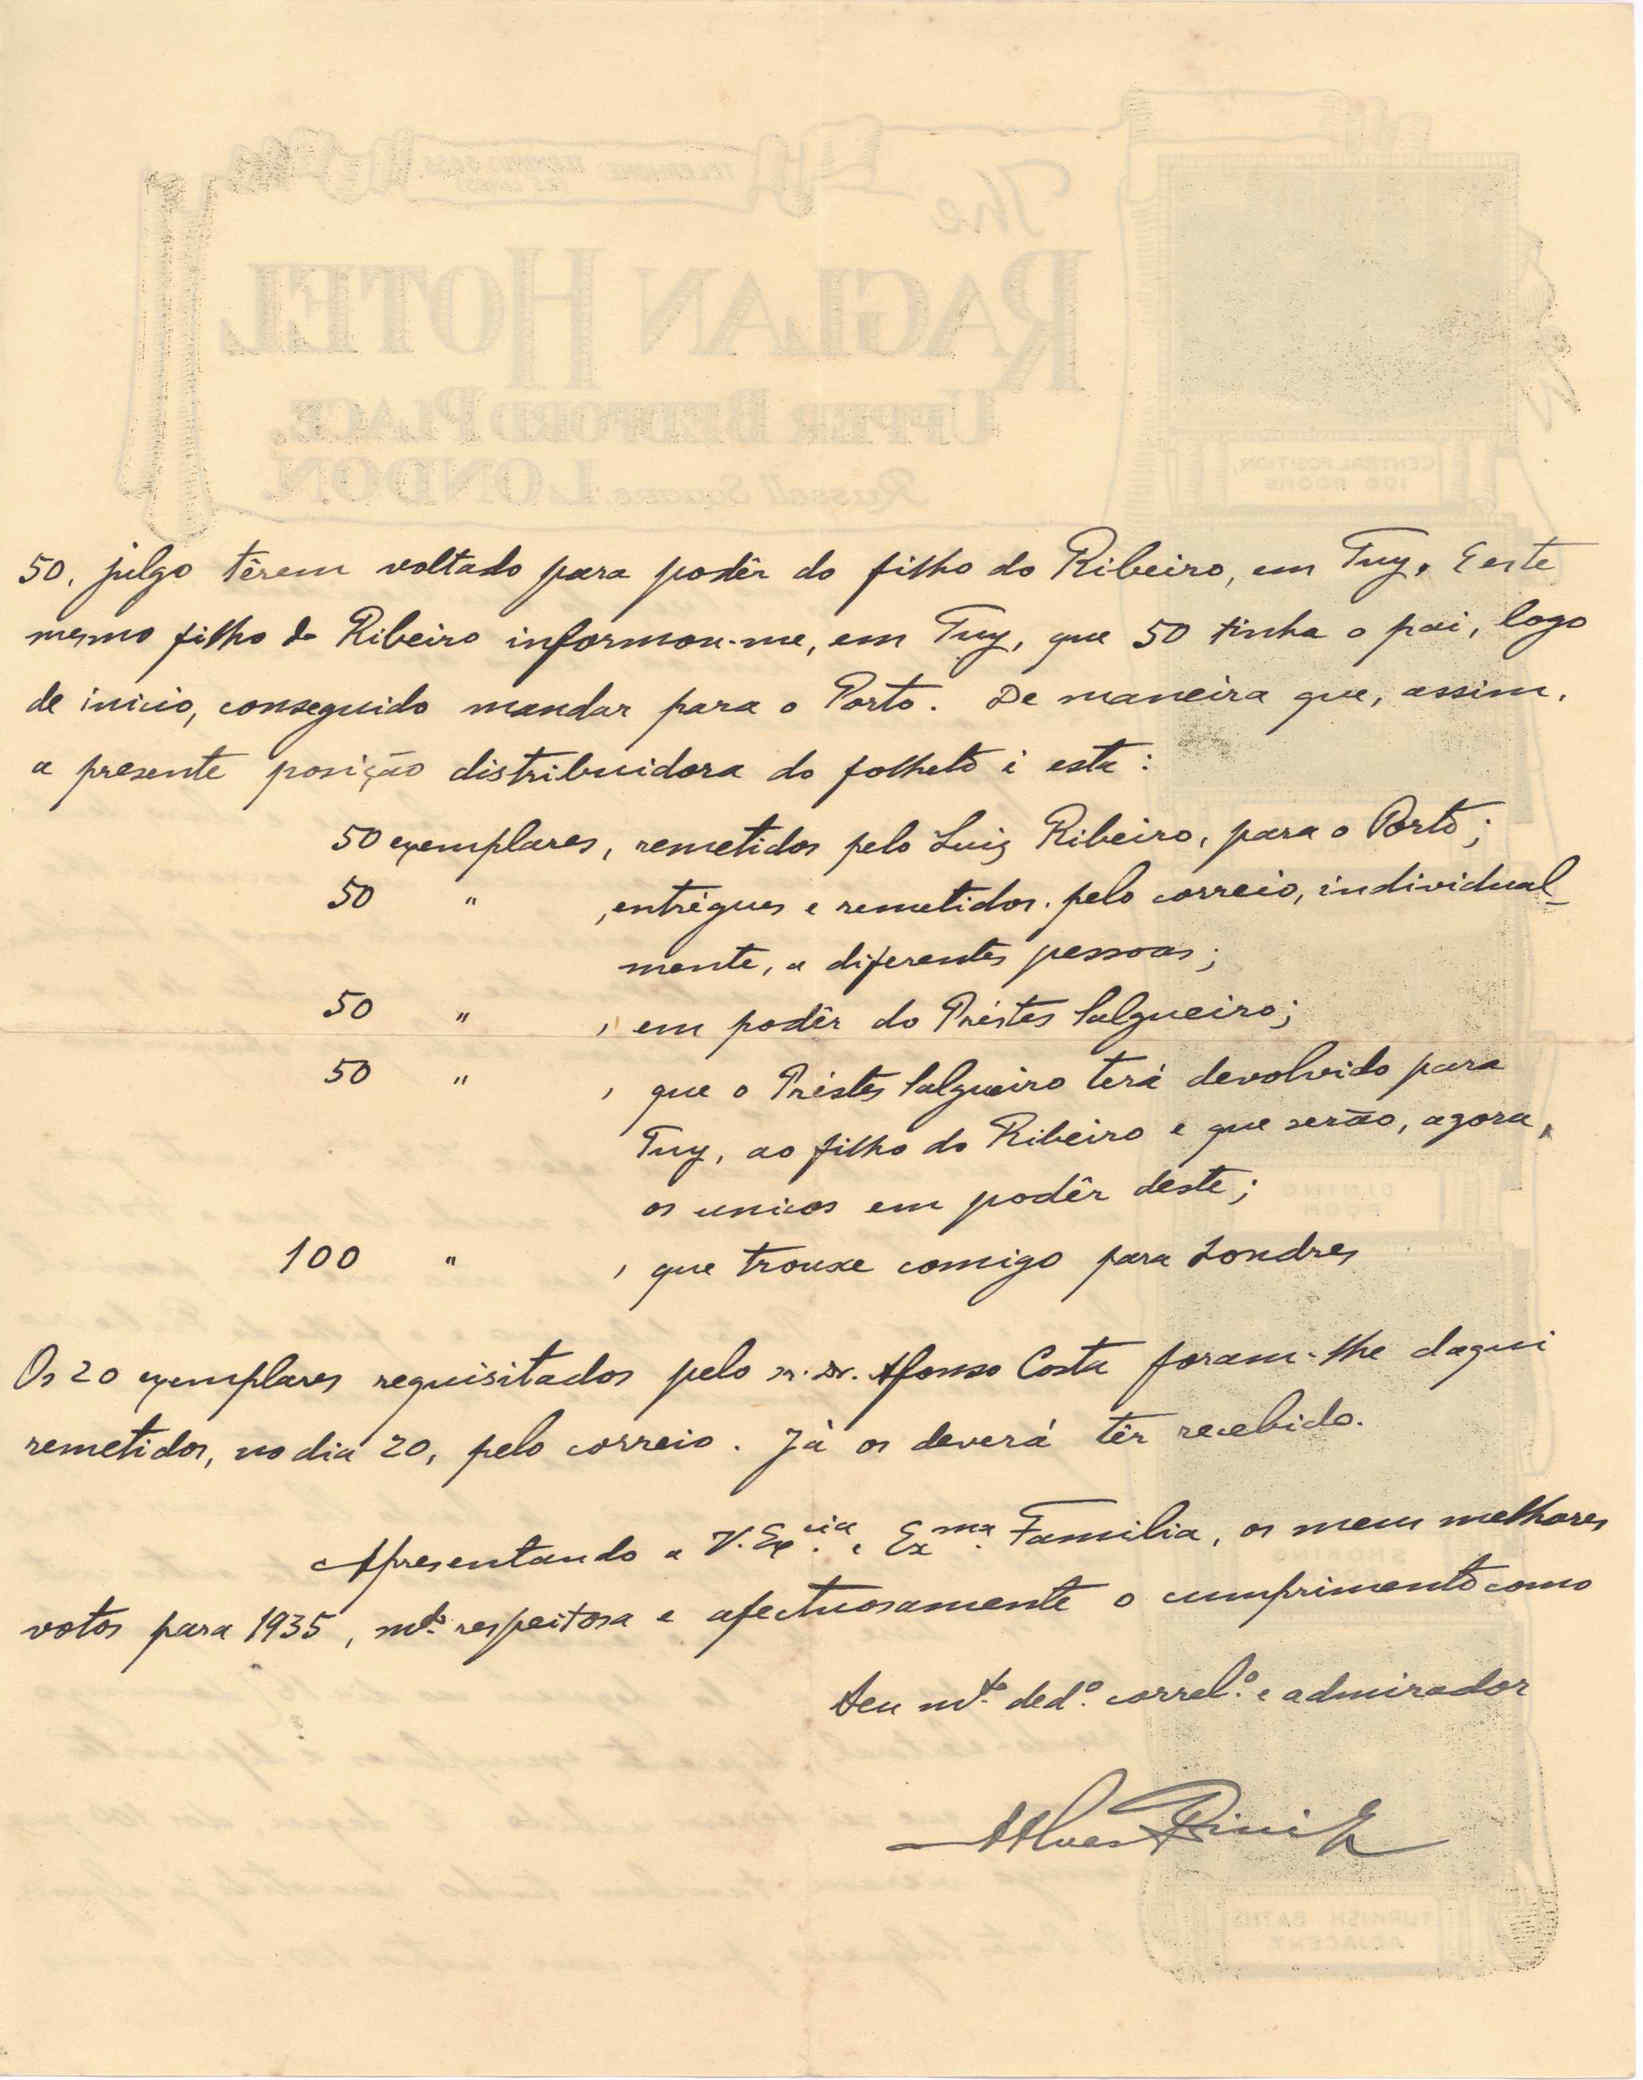 50, julgo têrem voltado para podêr do filho do Ribeiro, em Tuy. E este
mesmo filho do Ribeiro informou-me, em Tuy, que 50 tinha o pai, logo
de inicio, conseguido mandar para o Porto. De maneira que, assim,
a presente posição distribuidora do folheto é esta:
50 exemplares, remetidos pelo Luiz Ribeiro, para o Porto;
50 " , entrégues e remetidos, pelo correio, individual-
mente, a diferentes pessoas;
50 " , em podêr do Préstes Salgueiro;
50 " , que o Préstes Salgueiro terá devolvido para
Tuy, ao filho do Ribeiro e que serão, agora,
os unicos em podêr deste;
100 " , que trouxe comigo para Londres
Os 20 exemplares requisitados pelo sr. Dr. Afonso Costa foram-lhe daqui
remetidos, no dia 20, pelo correio. Já os deverá têr recebido.
Apresentando a V. Ex.cia e Ex.ma Familia, os meus melhores
votos para 1935, mt.o respeitosa e afectuosamente o cumprimento como
Seu mt.o ded.o correl.o e admirador
The
RAGLAN HOTEL
UPPER BEDFORD PLACE,
Russell Square, LONDON.
CENTRAL POSITION
100 ROOMS
DINING
ROOM
SMOKING
TURKISH BATHS
ADJACENT